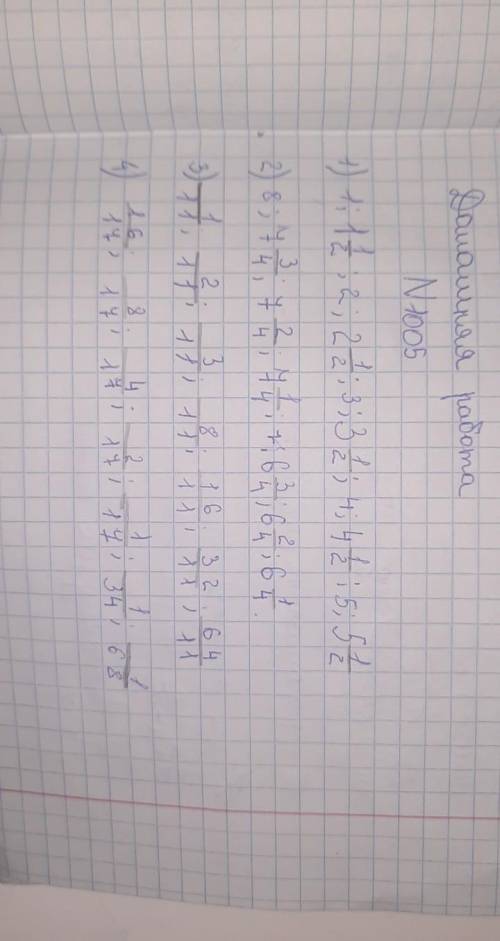 Домашняя работа
N1005
1) 1; 1 1/2; 2; 2 1/2; 3; 3 1/2; 4; 4 1/2; 5; 5 1/2
2) 8; 7 3/4; 7 2/4; 7 1/4; 7; 6 3/4; 6 2/4; 6 1/4.
3) 1/11; 2/11; 3/11; 8/11; 16/11; 32/11; 64/11
4) 16/17; 8/17; 4/17; 2/17; 1/17; 1/34; 1/68